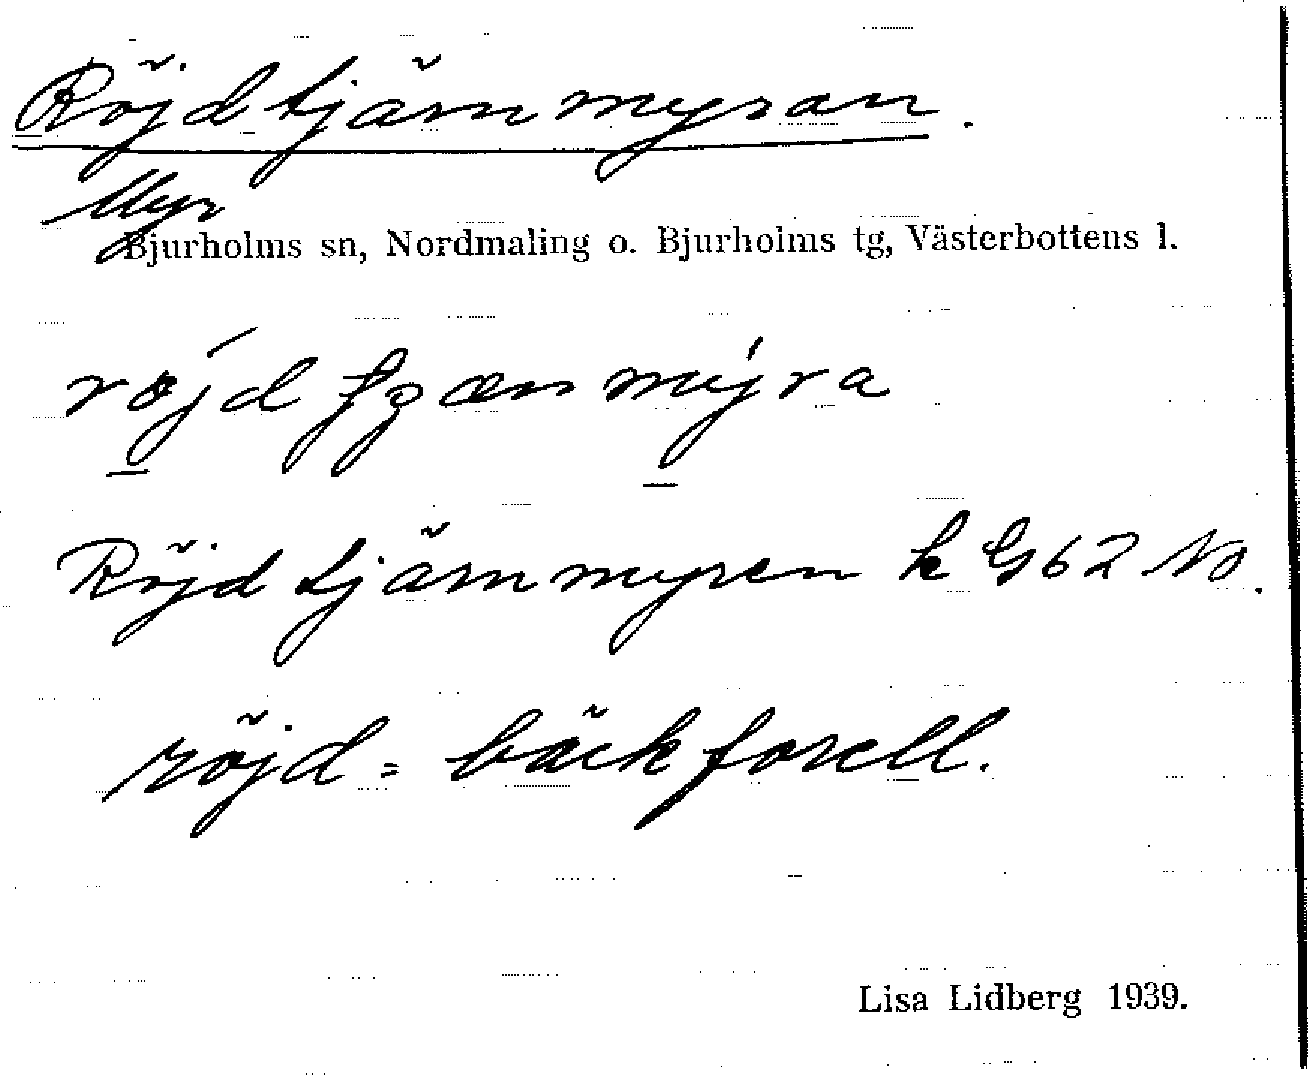 Röjdtjärnmyran.
Myr
Bjurholms sn, Nordmaling o. Bjurholms tg, Västerbottens l.
Röjdtjärnmyren k G62 NO.
röjd = bäckforell.
Lisa Lidberg 1939.